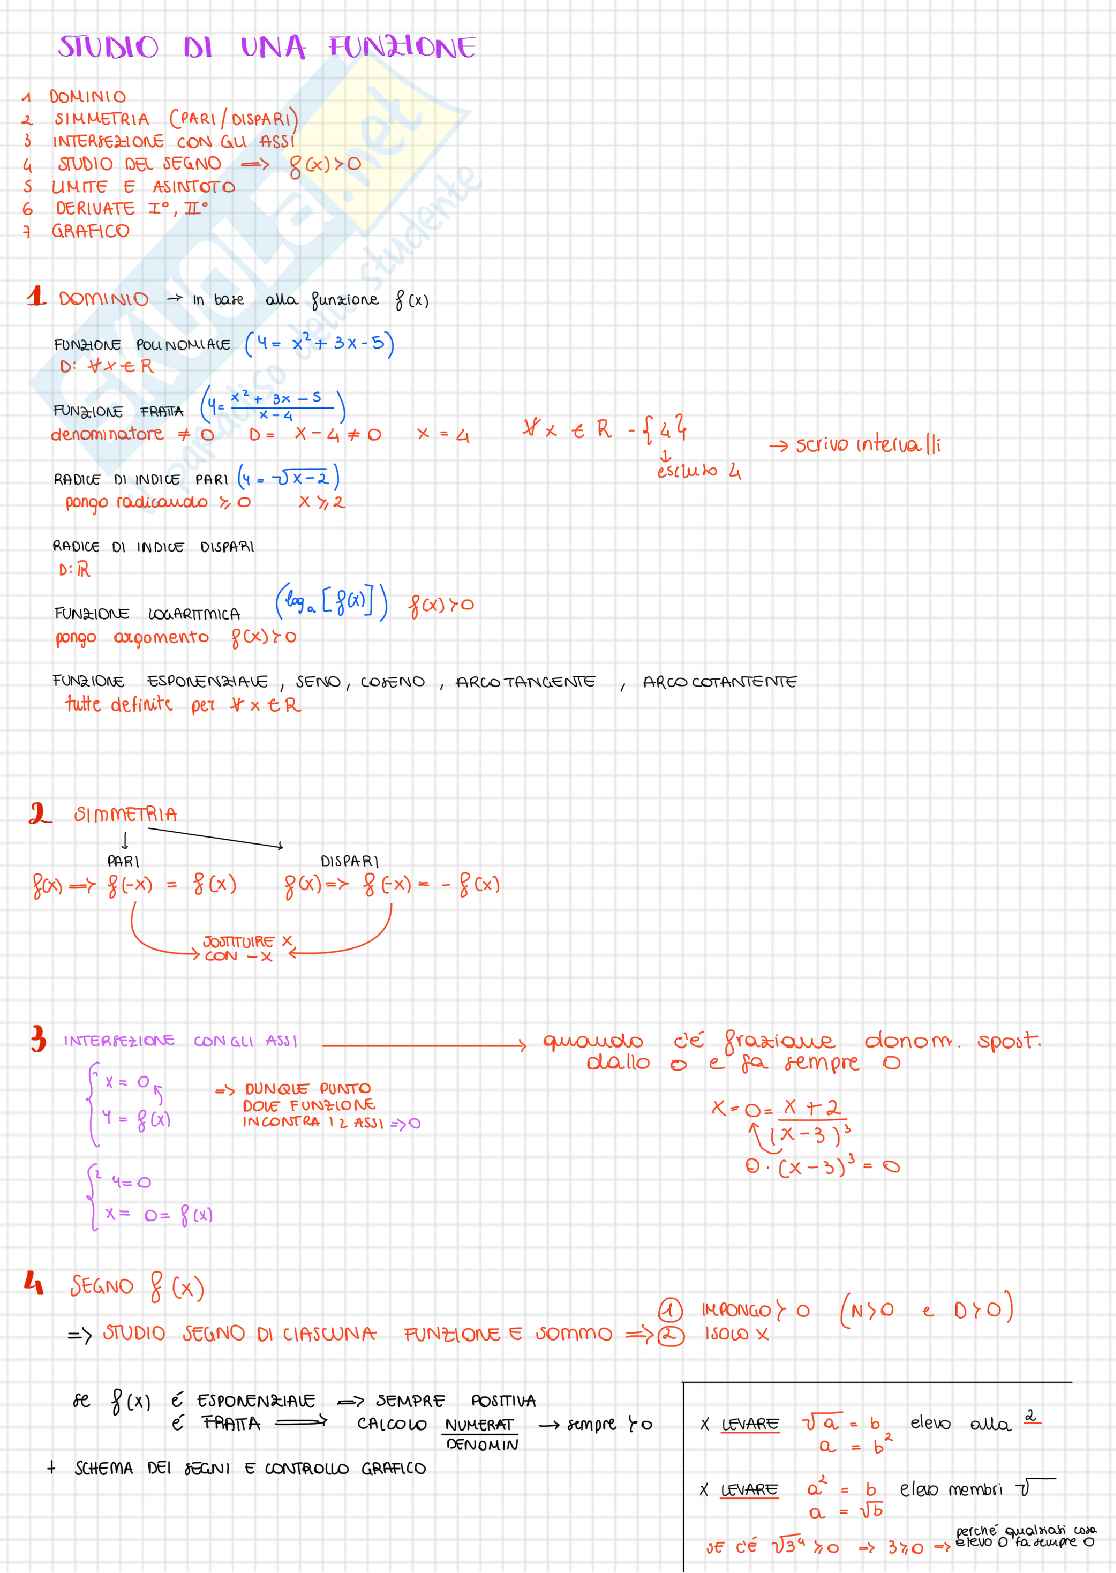 STUDIO DI UNA FUNZIONE
1 DOMINIO
2 SIMMETRIA (PARI/DISPARI)
3 INTERSEZIONE CON GLI ASSI
4 STUDIO DEL SEGNO => f(x)>0
5 LIMITE E ASINTOTO
6 DERIVATE I°, II°
7 GRAFICO
1 DOMINIO → in base alla funzione f(x)
FUNZIONE POLINOMIALE (y = x² + 3x - 5)
D: ∀ x ∈ R
FUNZIONE FRATTA (y = (x² + 3x - 5)/(x - 4))
denominatore ≠ 0 D = x - 4 ≠ 0 x = 4 ∀ x ∈ R - {4} → scrivo intervalli
↓
escluso 4
RADICE DI INDICE PARI (y = √(x-2))
pongo radicando ⩾ 0 x ⩾ 2
RADICE DI INDICE DISPARI
D: R
FUNZIONE LOGARITMICA (logₐ [f(x)]) f(x) > 0
pongo argomento f(x) > 0
FUNZIONE ESPONENZIALE, SENO, COSENO, ARCOTANGENTE, ARCOCOTANTENTE
tutte definite per ∀ x ∈ R
2 SIMMETRIA
PARI DISPARI
f(x) => f(-x) = f(x) f(x) => f(-x) = - f(x)
SOSTITUIRE X
CON - X
3 INTERSEZIONE CON GLI ASSI → quando c'é frazione donom. spost.
dallo 0 e fa sempre 0
{ x = 0
y = f(x)
=> DUNQUE PUNTO
DOVE FUNZIONE
INCONTRA I 2 ASSI => 0
x = 0 = (x + 2)/(x - 3)³
0 · (x - 3)³ = 0
{² y = 0
x = 0 = f(x)
4 SEGNO f(x)
=> STUDIO SEGNO DI CIASCUNA FUNZIONE E SOMMO => ① IMPONGO > 0 (N>0 e D>0)
② ISOLO X
se f(x) é ESPONENZIALE => SEMPRE POSITIVA
é FRATTA => CALCOLO NUMERAT/DENOMIN → sempre > 0
+ SCHEMA DEI SEGNI E CONTROLLO GRAFICO
X LEVARE √a = b elevo alla 2
a = b²
X LEVARE a² = b elevo membri √
a = √b
SE C'É √3⁴ ⩾ 0 => 3 ⩾ 0 => perché qualsiasi cosa
elevo 0 fa sempre 0
SKUOLA.net
il paradiso dello studente